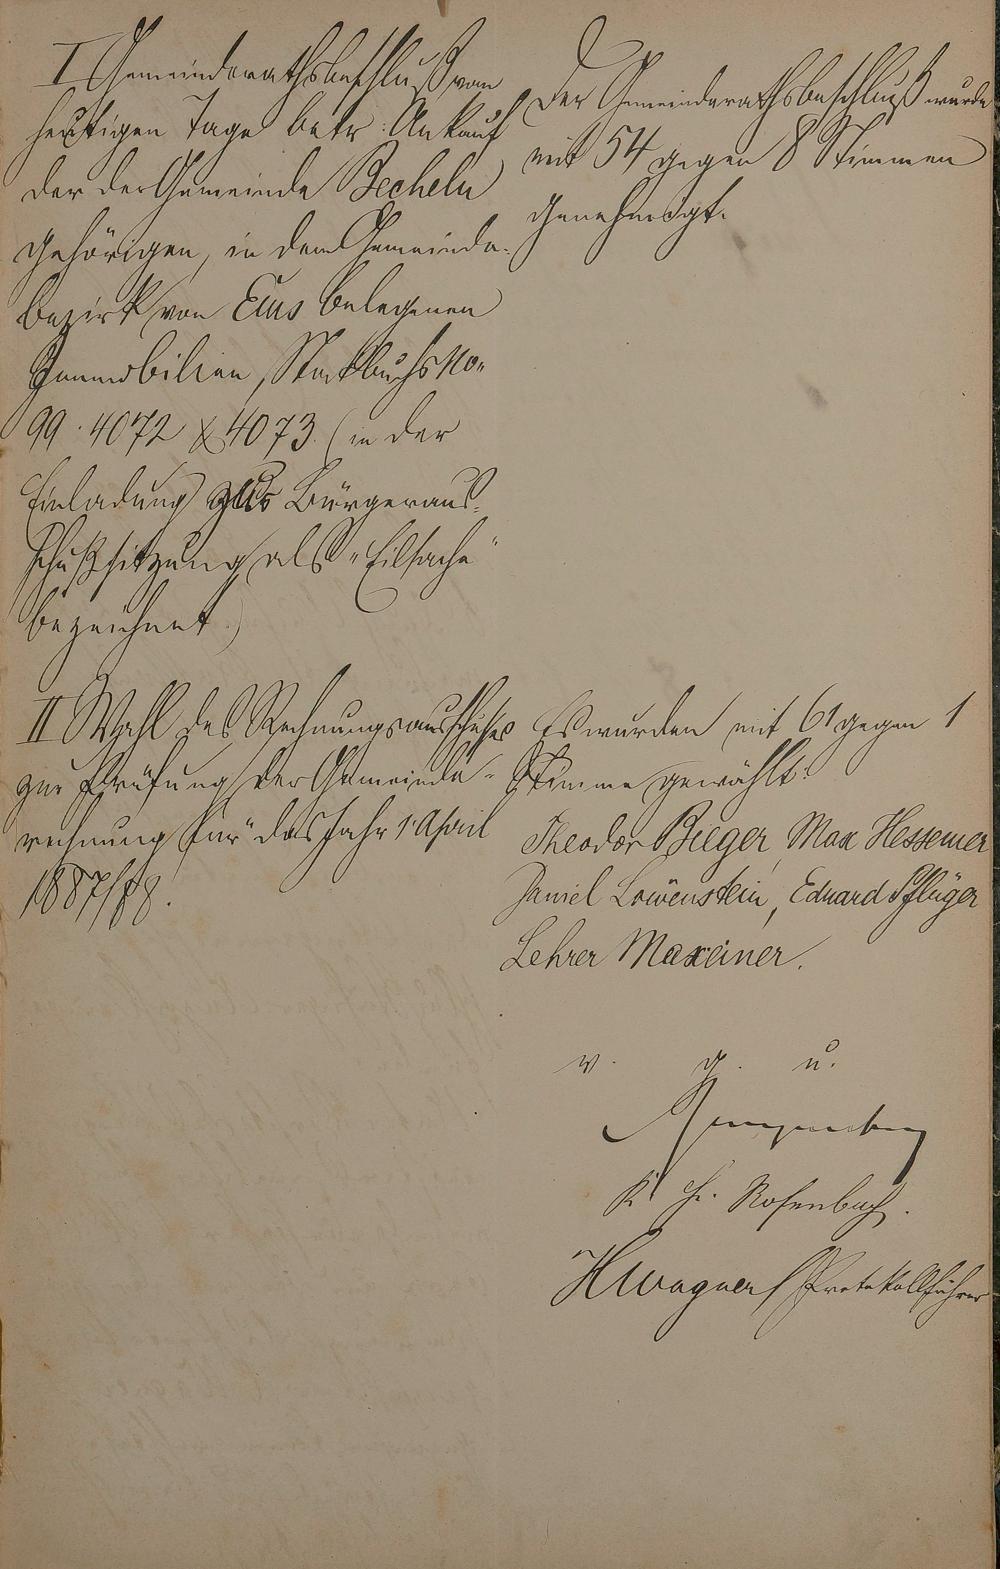 I Gemeinderathsbeschluß vom
heutigen Tage betr: Ankauf
der der Gemeinde Becheln
gehörigen, in dem Gemeinde-
bezirk von Ems belegenen
Immobilien, Stockbuchs No.
99. 4072 & 4073. (in der
Einladung zur Bürgeraus-
schußsitzung als "Eilsache"
bezeichnet.)
Der Gemeinderathsbeschluß wurde
mit 54 gegen 8 Stimmen
genehmigt.
II Wahl des Rechnungsausschußes
zur Prüfung der Gemeinde-
rechnung für das Jahr 1. April
1887/88.
Es wurden mit 61 gegen 1
Stimme gewählt:
Theodor Bieger, Max Hessemer
Daniel Löwenstein, Eduard Pflüger
Lehrer Maxeiner.
v. g. u.
K Rosenbach.
HWagner Protokollführer